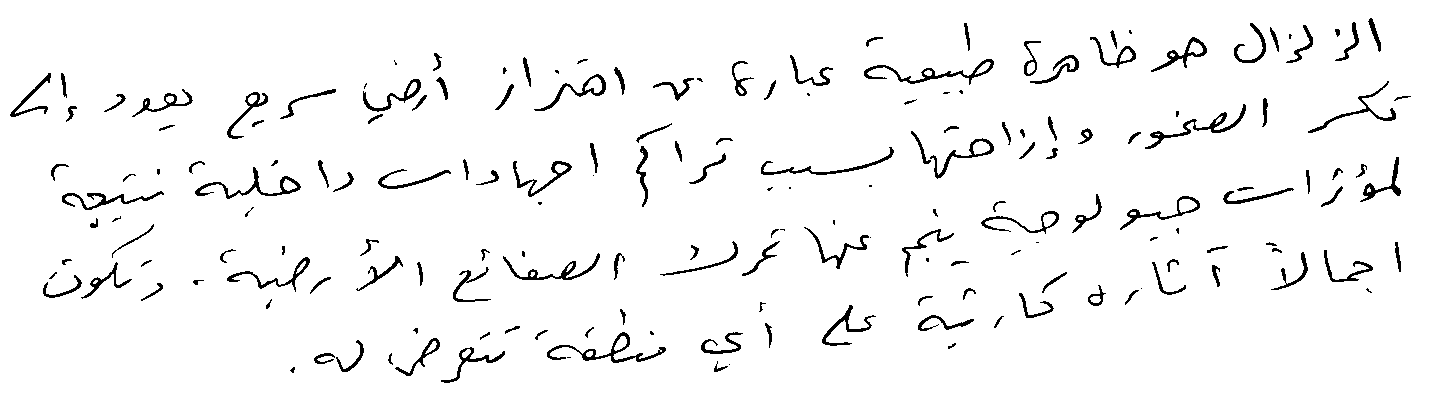 الزلزال هو ظاهرة طبيعية عبارة عن اهتزاز أرضي سريع يعود إلى
تكسر الصخور وإزاحتها بسبب تراكم اجهادات داخلية نتيجة
لمؤثرات جيولوجية ينجم عنها تحرك الصفائح الأرضية. وتكون
اجمالاً آثاره كارثية على أي منطقة تتعرض له.